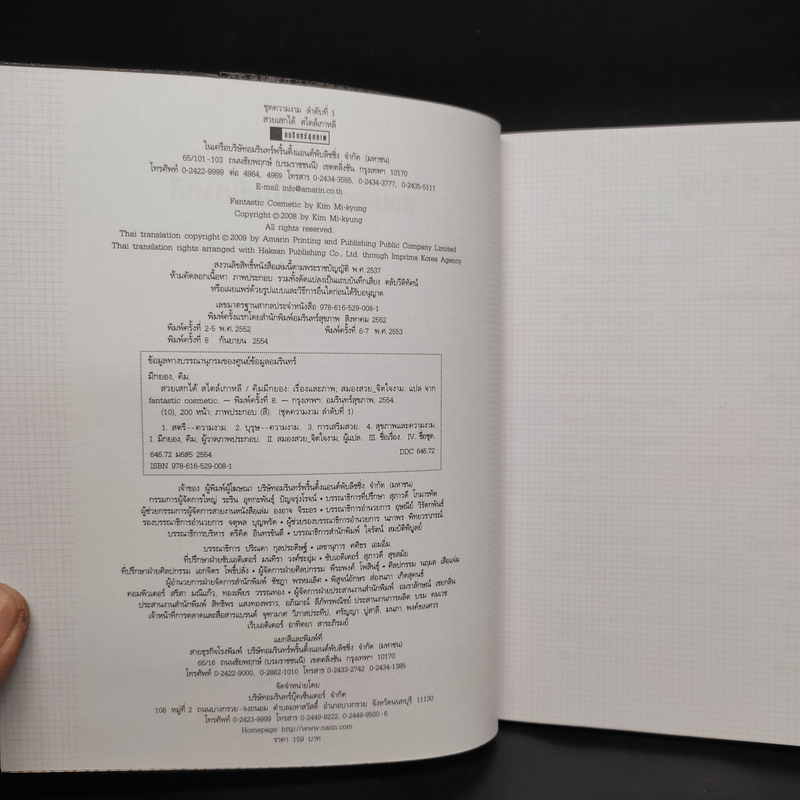 ชุดความงาม ลำดับที่ 1
สวยเสกได้ สไตล์เกาหลี
อมรินทร์สุขภาพ
ในเครือบริษัทอมรินทร์พริ้นติ้งแอนด์พับลิชชิ่ง จำกัด (มหาชน)
65/101-103 ถนนชัยพฤกษ์ (บรมราชชนนี) เขตตลิ่งชัน กรุงเทพฯ 10170
โทรศัพท์ 0-2422-9999 ต่อ 4964, 4969 โทรสาร 0-2434-3555, 0-2434-3777, 0-2435-5111
E-mail: info@amarin.co.th
Fantastic Cosmetic by Kim Mi-kyung
Copyright ©2008 by Kim Mi-kyung
All rights reserved.
Thai translation copyright ©2009 by Amarin Printing and Publishing Public Company Limited
Thai translation rights arranged with Haksan Publishing Co., Ltd. through Imprima Korea Agency
สงวนลิขสิทธิ์หนังสือเล่มนี้ตามพระราชบัญญัติ พ.ศ. 2537
ห้ามคัดลอกเนื้อหา ภาพประกอบ รวมทั้งดัดแปลงเป็นแถบบันทึกเสียง ตลับวีดิทัศน์
หรือเผยแพร่ด้วยรูปแบบและวิธีการอื่นใดก่อนได้รับอนุญาต
เลขมาตรฐานสากลประจำหนังสือ 978-616-529-008-1
พิมพ์ครั้งแรกโดยสำนักพิมพ์อมรินทร์สุขภาพ สิงหาคม 2552
พิมพ์ครั้งที่ 2-5 พ.ศ. 2552 พิมพ์ครั้งที่ 6-7 พ.ศ. 2553
พิมพ์ครั้งที่ 8 กันยายน 2554
ข้อมูลทางบรรณานุกรมของศูนย์ข้อมูลอมรินทร์
มีกยอง, คิม.
สวยเสกได้ สไตล์เกาหลี / คิมมีกยอง: เรื่องและภาพ; สมองสวย_จิตใจงาม: แปล จาก
fantastic cosmetic. — พิมพ์ครั้งที่ 8. — กรุงเทพฯ: อมรินทร์สุขภาพ, 2554.
(10), 200 หน้า: ภาพประกอบ (สี). (ชุดความงาม ลำดับที่ 1)
1. สตรี--ความงาม. 2. บุรุษ--ความงาม. 3. การเสริมสวย. 4. สุขภาพและความงาม.
I. มีกยอง, คิม, ผู้วาดภาพประกอบ. II. สมองสวย_จิตใจงาม, ผู้แปล. III. ชื่อเรื่อง. IV. ชื่อชุด.
646.72 ม6ส5 2554 DDC 646.72
ISBN 978-616-529-008-1
เจ้าของ ผู้พิมพ์ผู้โฆษณา บริษัทอมรินทร์พริ้นติ้งแอนด์พับลิชชิ่ง จำกัด (มหาชน)
กรรมการผู้จัดการใหญ่ ระริน อุทกะพันธุ์ ปัญจรุ่งโรจน์ • บรรณาธิการที่ปรึกษา สุภาวดี โกมารทัต
ผู้ช่วยกรรมการผู้จัดการสายงานหนังสือเล่ม องอาจ จิระอร • บรรณาธิการอำนวยการ อุษณีย์ วิรัตกพันธ์
รองบรรณาธิการอำนวยการ จตุพล บุญพรัด • ผู้ช่วยรองบรรณาธิการอำนวยการ นภาพร พิทยวราภรณ์
บรรณาธิการบริหาร ตรีคิด อินทรขันตี • บรรณาธิการสำนักพิมพ์ ใจรัตน์ สมบัติพิบูลย์
บรรณาธิการ ปริณดา กุลประดิษฐ์ • เลขานุการ คศิธร เอมอิ่ม
ที่ปรึกษาฝ่ายซับเอดิเตอร์ มนทิรา วงศ์ชะอุ่ม • ซับเอดิเตอร์ สุภาวดี สุขสมัย
ที่ปรึกษาฝ่ายศิลปกรรม เอกจิตร โพธิ์ปลั่ง • ผู้จัดการฝ่ายศิลปกรรม พีระพงศ์ โพสินธุ์ • ศิลปกรรม นฤมล เสือแจ่ม
ผู้อำนวยการฝ่ายจัดการสำนักพิมพ์ ชัชฎา พรหมเลิศ • พิสูจน์อักษร ส่องนภา เกิดสุคนธ์
คอมพิวเตอร์ สริสา มณีแก้ว, ทองเพียร วรรณทอง • ผู้จัดการฝ่ายประสานงานสำนักพิมพ์ อมราลักษณ์ เชยกลิ่น
ประสานงานสำนักพิมพ์ สิทธิพร แสงทองพราว, อภิฌาณ์ ลีภัทรพณิชย์ ประสานงานการผลิต บรม คมเวช
เจ้าหน้าที่การตลาดและสื่อสารแบรนด์ จุฑามาศ วิภาสประทีป, ศรัญญา ปู่สาลี, มนภา พงศ์ธเนศวร
เว็บเอดิเตอร์ อาทิตยา สาระภิรมย์
แยกสีและพิมพ์ที่
สายธุรกิจโรงพิมพ์ บริษัทอมรินทร์พริ้นติ้งแอนด์พับลิชชิ่ง จำกัด (มหาชน)
65/16 ถนนชัยพฤกษ์ (บรมราชชนนี) เขตตลิ่งชัน กรุงเทพฯ 10170
โทรศัพท์ 0-2422-9000, 0-2882-1010 โทรสาร 0-2433-2742 0-2434-1385
จัดจำหน่ายโดย
บริษัทอมรินทร์บุ๊คเซ็นเตอร์ จำกัด
108 หมู่ที่ 2 ถนนบางกรวย-จงถนอม ตำบลมหาสวัสดิ์ อำเภอบางกรวย จังหวัดนนทบุรี 11130
โทรศัพท์ 0-2423-9999 โทรสาร 0-2449-9222, 0-2449-9500-6
Homepage: http://www.naiin.com
ราคา 159 บาท